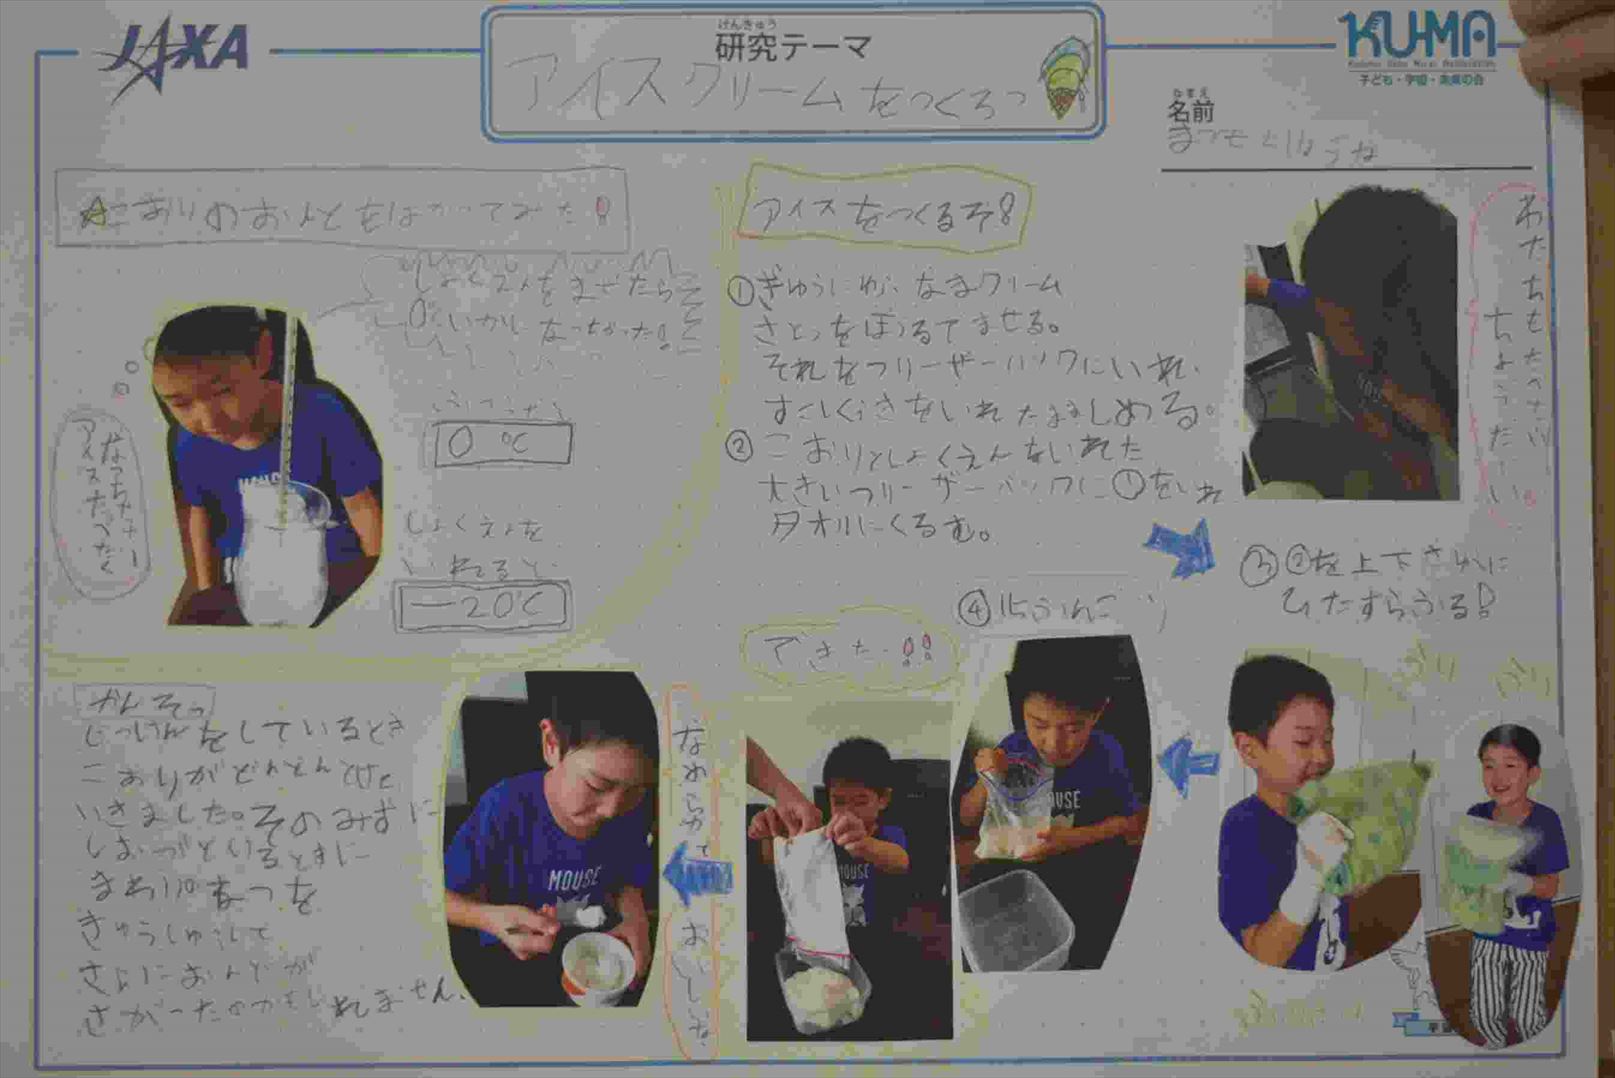 JAXA
けんきゅう
研究テーマ
アイスクリームをつくろう
KUMA
子ども・宇宙・未来の会
なまえ
名前
こおりのおんどをはかってみた!
しょくえんをまぜたら
0℃いかになっちゃった!
0℃
しょくえんを
いれると
-20℃
アイスたべたく
なっちゃたー
アイスをつくるぞ!
①ぎゅうにゅう、なまクリーム
さとうをぼうるでまぜる。
それをフリーザーバックにいれ、
すこしくうきをいれたまましめる。
②こおりとしょくえんをいれた
大きいフリーザーバックに①をいれ
タオルにくるむ。
わたちもたべたい
ちょうだーい。
③②を上下さゆうに
ひたすらふる!
④15ふんご
できたー!!
なめらかで
おいしいね
MOUSE
かんそう
じっけんをしているとき
こおりがどんどんとけて
いきました。そのみずに
しおがとけるときに
まわりのねつを
きゅうしゅうして
さらにおんどが
さがったのかもしれません。